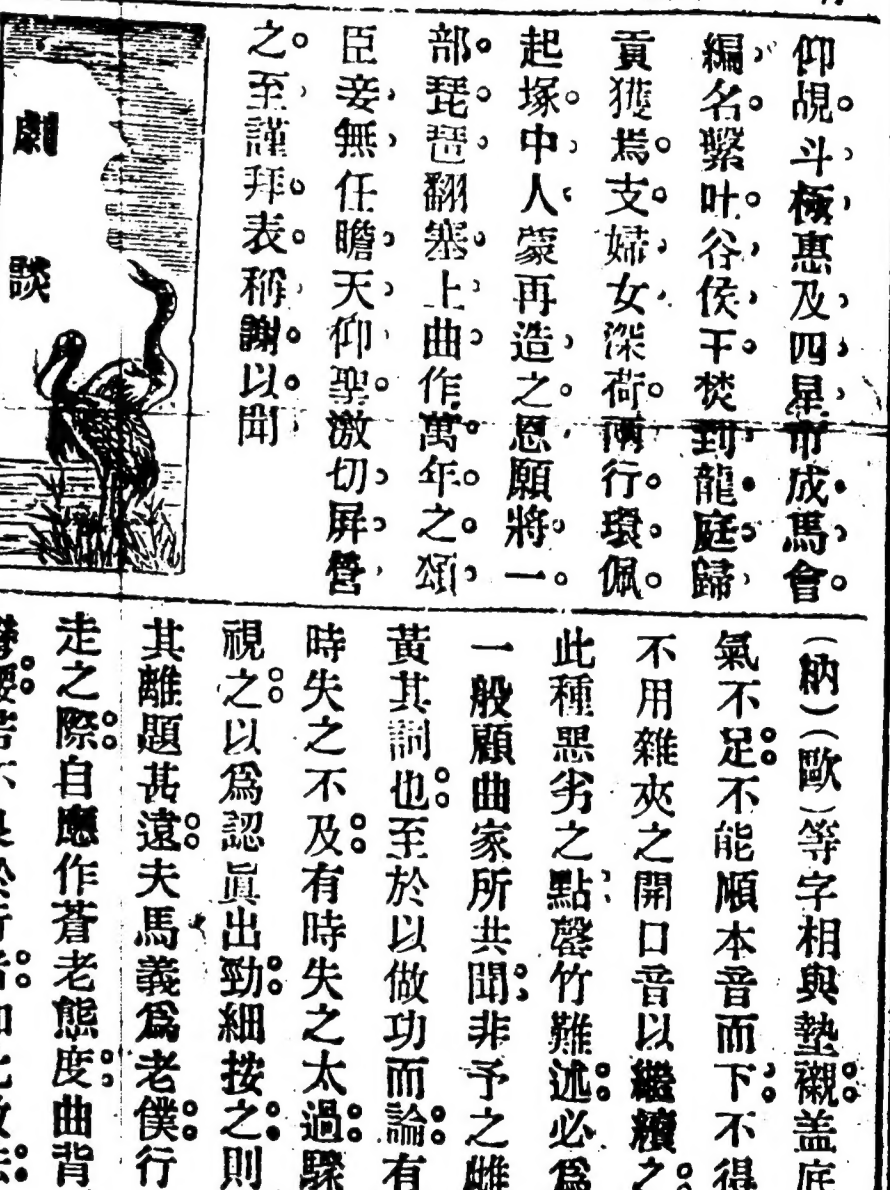 仰覘斗極惠及四星市成馬會
編名繫吐谷侯干焚到龍庭歸
貢獲焉支婦女深荷兩行環佩
起塚中人蒙再造之恩願將一
部琵琶翻塞上曲作萬年之頌
臣妾無任瞻天仰聖激切屏營
之至謹拜表稱謝以聞
劇談
(納)(歐)等字相與墊襯盖底
氣不足不能順本音而下不得
不用雜夾之開口音以繼續之
此種惡劣之點罄竹難述必爲
一般顧曲家所共聞非予之雌
黃其詞也至於以做功而論有
時失之不及有時失之太過驟
視之以爲認眞出勁細按之則
其離題甚遠夫馬義爲老僕行
走之際自應作蒼老態度曲背